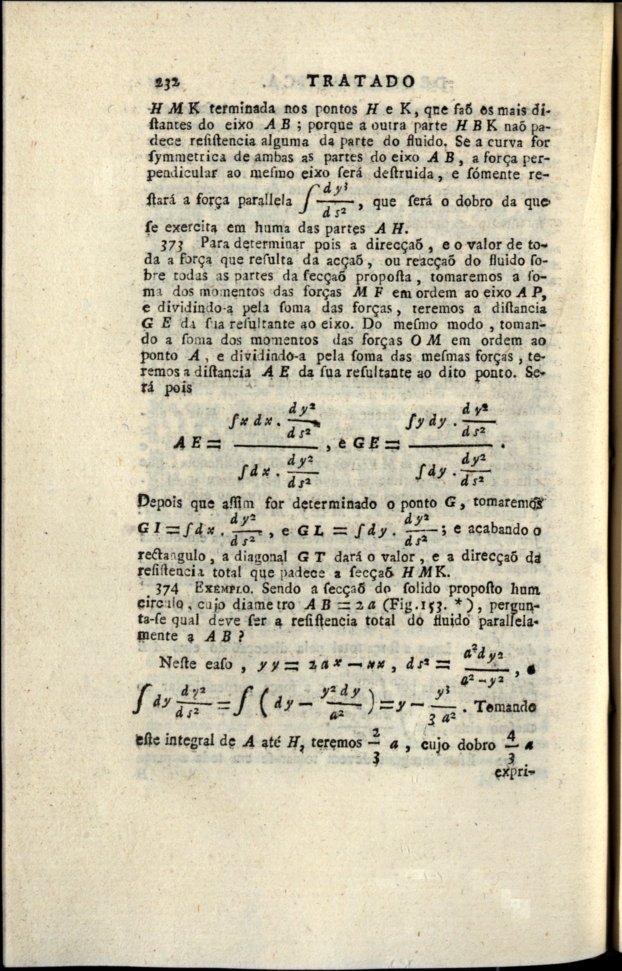 232 TRATADO
H M K terminada nos pontos H e K, que ſaõ os mais di-
ſtantes do eixo A B ; porque a outra parte H B K naõ pa-
dece reſiſtencia alguma da parte do fluido. Se a curva for
ſymmetrica de ambas as partes do eixo A B , a força per-
pendicular ao meſmo eixo ſerá deſtruida , e ſómente re-
ſtará a força parallela ∫ dy³/ds² , que ſerá o dobro da que
ſe exercita em huma das partes A H.
373 Para determinar pois a direcçaõ , e o valor de to-
da a força que reſulta da acçaõ , ou reacçaõ do fluido ſo-
bre todas as partes da ſecçaõ propoſta , tomaremos a ſo-
ma dos momentos das forças M F em ordem ao eixo A P,
e dividindo-a pela ſoma das forças , teremos a diſtancia
G E da ſua reſultante ao eixo. Do meſmo modo , toman-
do a ſoma dos momentos das forças O M em ordem ao
ponto A , e dividindo-a pela ſoma das meſmas forças , te-
remos a diſtancia A E da ſua reſultante ao dito ponto. Se-
rá pois
A E = (∫x dx . dy²/ds²) / (∫dx . dy²/ds²) , e G E = (∫y dy . dy²/ds²) / (∫dy . dy²/ds²) .
Depois que aſſim for determinado o ponto G , tomaremos
G I = ∫dx . dy²/ds² , e G L = ∫dy . dy²/ds² ; e acabando o
rectangulo , a diagonal G T dará o valor , e a direcçaõ da
reſiſtencia total que padece a ſecçaõ H M K.
374 EXEMPLO. Sendo a ſecçaõ do ſolido propoſto hum
circulo , cujo diametro A B = 2 a (Fig.153. *) , pergun-
ta-ſe qual deve ſer a reſiſtencia total do fluido parallela-
mente a A B ?
Neſte caſo , yy = 2ax — xx , ds² = a²dy²/(a² — y²) , e
∫ dy dy²/ds² = ∫ ( dy — y²dy/a² ) = y — y³/3a² . Tomando
eſte integral de A até H, teremos 2/3 a , cujo dobro 4/3 a
expri-